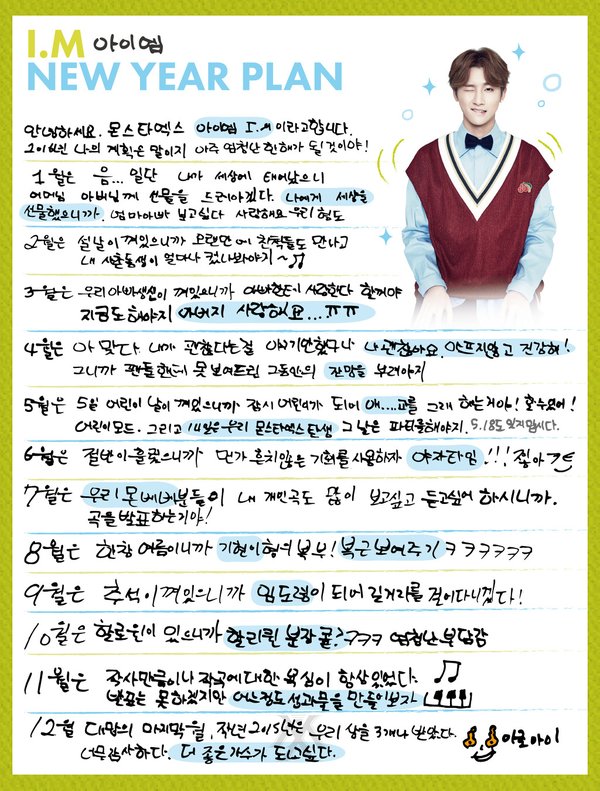 I.M 아이엠
NEW YEAR PLAN
안녕하세요. 몬스타엑스 아이엠 I.M 이라고합니다.
2016년 나의 계획은 말이지 아주 엄청난 한해가 될 것이야!
1월은 음... 일단 내가 세상에 태어났으니
어머님 아버님께 선물을 드려야겠다. 나에게 세상을
선물했으니까. 엄마아빠 보고싶다 사랑해요 우리 형도
2월은 설날이 껴있으니까 오랜만에 친척들도 만나고
내 사촌동생이 얼마나 컸나봐야지~♫
3월은 우리아빠생신이 껴있으니까 아빠한테 사랑한다 할꺼야
지금도해야지 아버지 사랑해요...ㅠㅠ
4월은 아 맞다. 내가 괜찮다는걸 얘기안했구나 나 괜찮아요. 아프지않고 건강해!
그니까 팬들한테 못보여드린 그동안의 잔망을 부려야지
5월은 5월 어린이날이 껴있으니까 잠시 어린이가 되어 애....교를 그래 하는거야! 할수있어!
어린이모드. 그리고 14일은 우리 몬스타엑스탄생 그날은 파티를해야지. 5.18도 잊지맙시다.
6월은 절반이흘렀으니까 뭔가 흔치않은 기회를 사용하자 야자타임!!! 좋아
7월은 우리 몬베베분들이 내 개인곡도 많이 보고싶고 듣고싶어 하시니까.
곡을발표하는거야!
8월은 한창 여름이니까 기현이형의 복부! 복근보여주기 ㅋㅋㅋㅋㅋㅋ
9월은 추석이껴있으니까 임도령이 되어 길거리를 걸어다니겠다!
10월은 할로윈이 있으니까 할리퀸 분장 콜? ㅋㅋㅋ 엄청난부담감
11월은 작사만큼이나 작곡에대한 욕심이 항상있었다. ♫
발표는 못하겠지만 어느정도 성과물을 만들어보자
12월 대망의 마지막월, 작년 2015년은 우리 상을 3개나 받았다.
너무감사하다. 더 좋은가수가 되고싶다. 아로아이